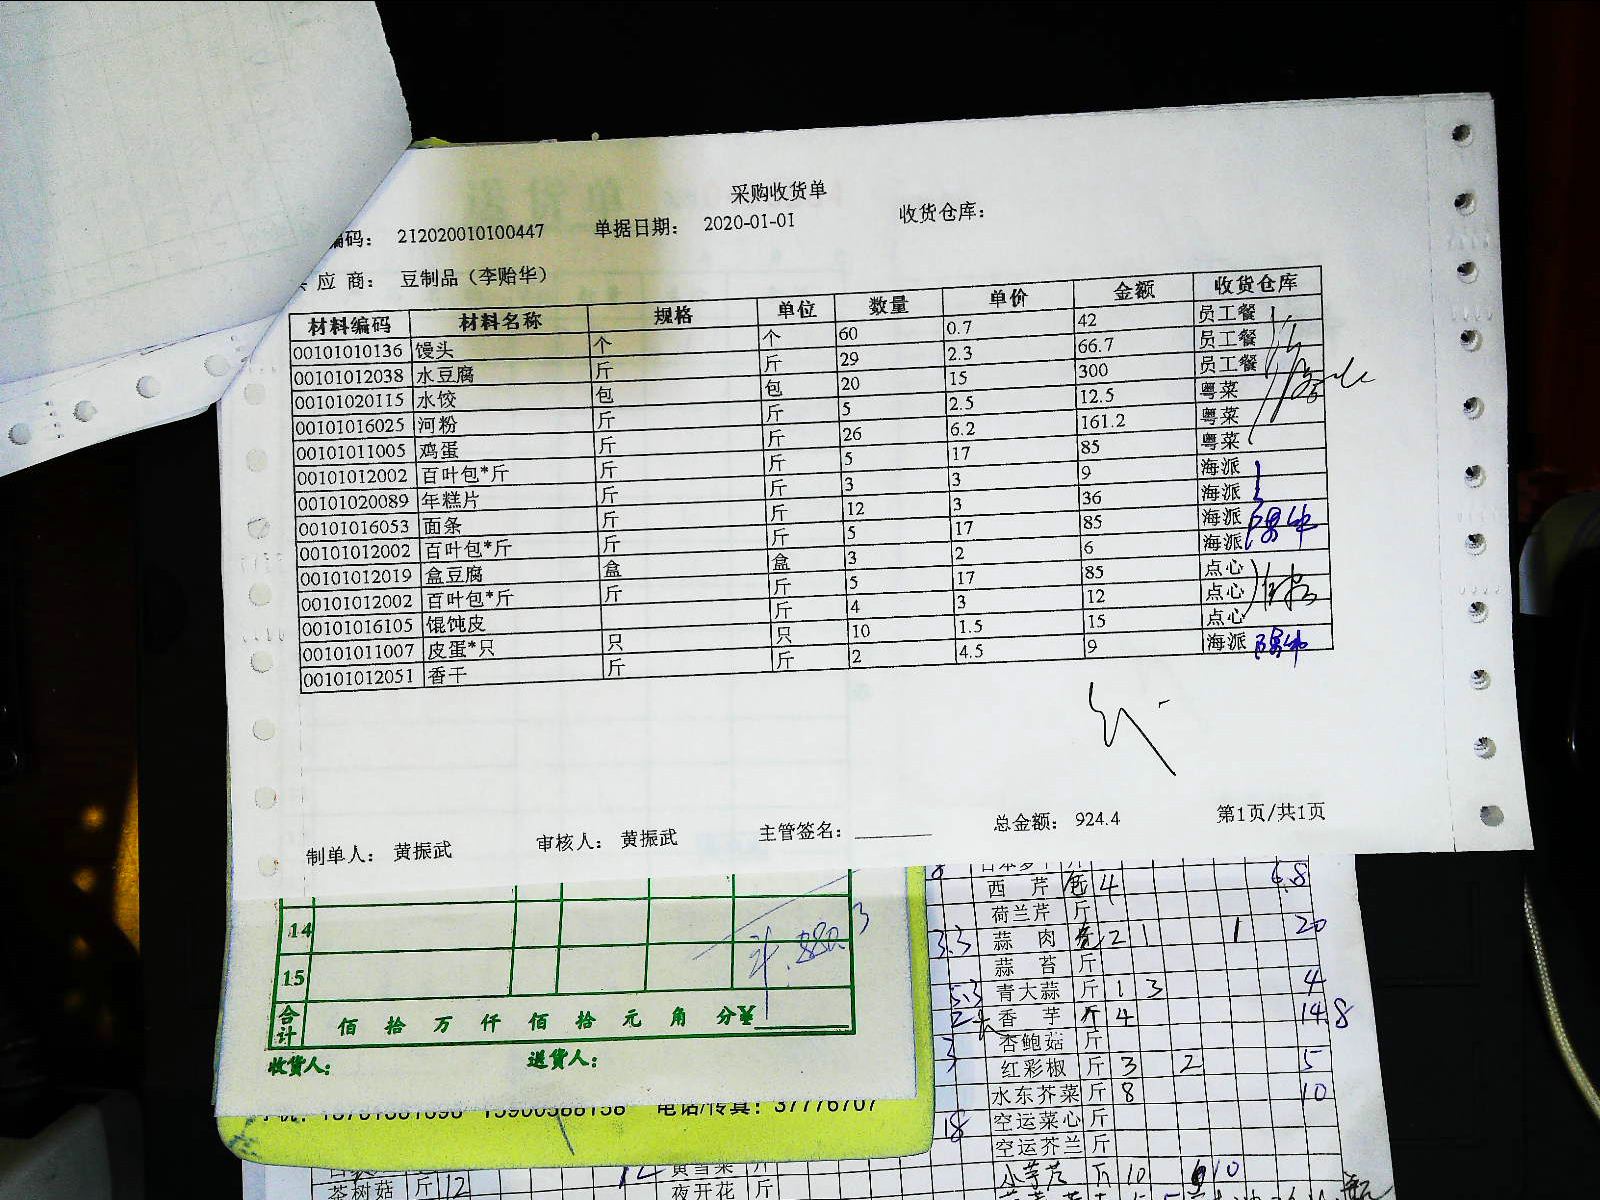 采购收货单
编码： 212020010100447 单据日期： 2020-01-01 收货仓库：
应 商： 豆制品（李贻华）
材料编码 材料名称 规格 单位 数量 单价 金额 收货仓库
00101010136 馒头 个 个 60 0.7 42 员工餐
00101012038 水豆腐 斤 斤 29 2.3 66.7 员工餐
00101020115 水饺 包 包 20 15 300 员工餐
00101016025 河粉 斤 斤 5 2.5 12.5 粤菜
00101011005 鸡蛋 斤 斤 26 6.2 161.2 粤菜
00101012002 百叶包*斤 斤 斤 5 17 85 粤菜
00101020089 年糕片 斤 斤 3 3 9 海派
00101016053 面条 斤 斤 12 3 36 海派
00101012002 百叶包*斤 斤 斤 5 17 85 海派
00101012019 盒豆腐 盒 盒 3 2 6 海派
00101012002 百叶包*斤 斤 斤 5 17 85 点心
00101016105 馄饨皮 斤 4 3 12 点心
00101011007 皮蛋*只 只 只 10 1.5 15 点心
00101012051 香干 斤 斤 2 4.5 9 海派
制单人： 黄振武 审核人： 黄振武 主管签名： 总金额： 924.4 第1页/共1页
14
15
合计 佰 拾 万 仟 佰 拾 元 角 分¥
收货人： 送货人：
电话/传真：37776707
西 芹 4 6.8
荷兰芹 斤
3.3 蒜 肉 2 1 1 20
蒜 苔 斤
5.3 青大蒜 斤 1 3 4
香 芋 斤 4 14.8
3 杏鲍菇 斤
红彩椒 斤 3 2 5
水东芥菜 斤 8 10
18 空运菜心 斤
空运芥兰 斤
小芋艿 斤 10
茶树菇 斤 12
夜开花 斤